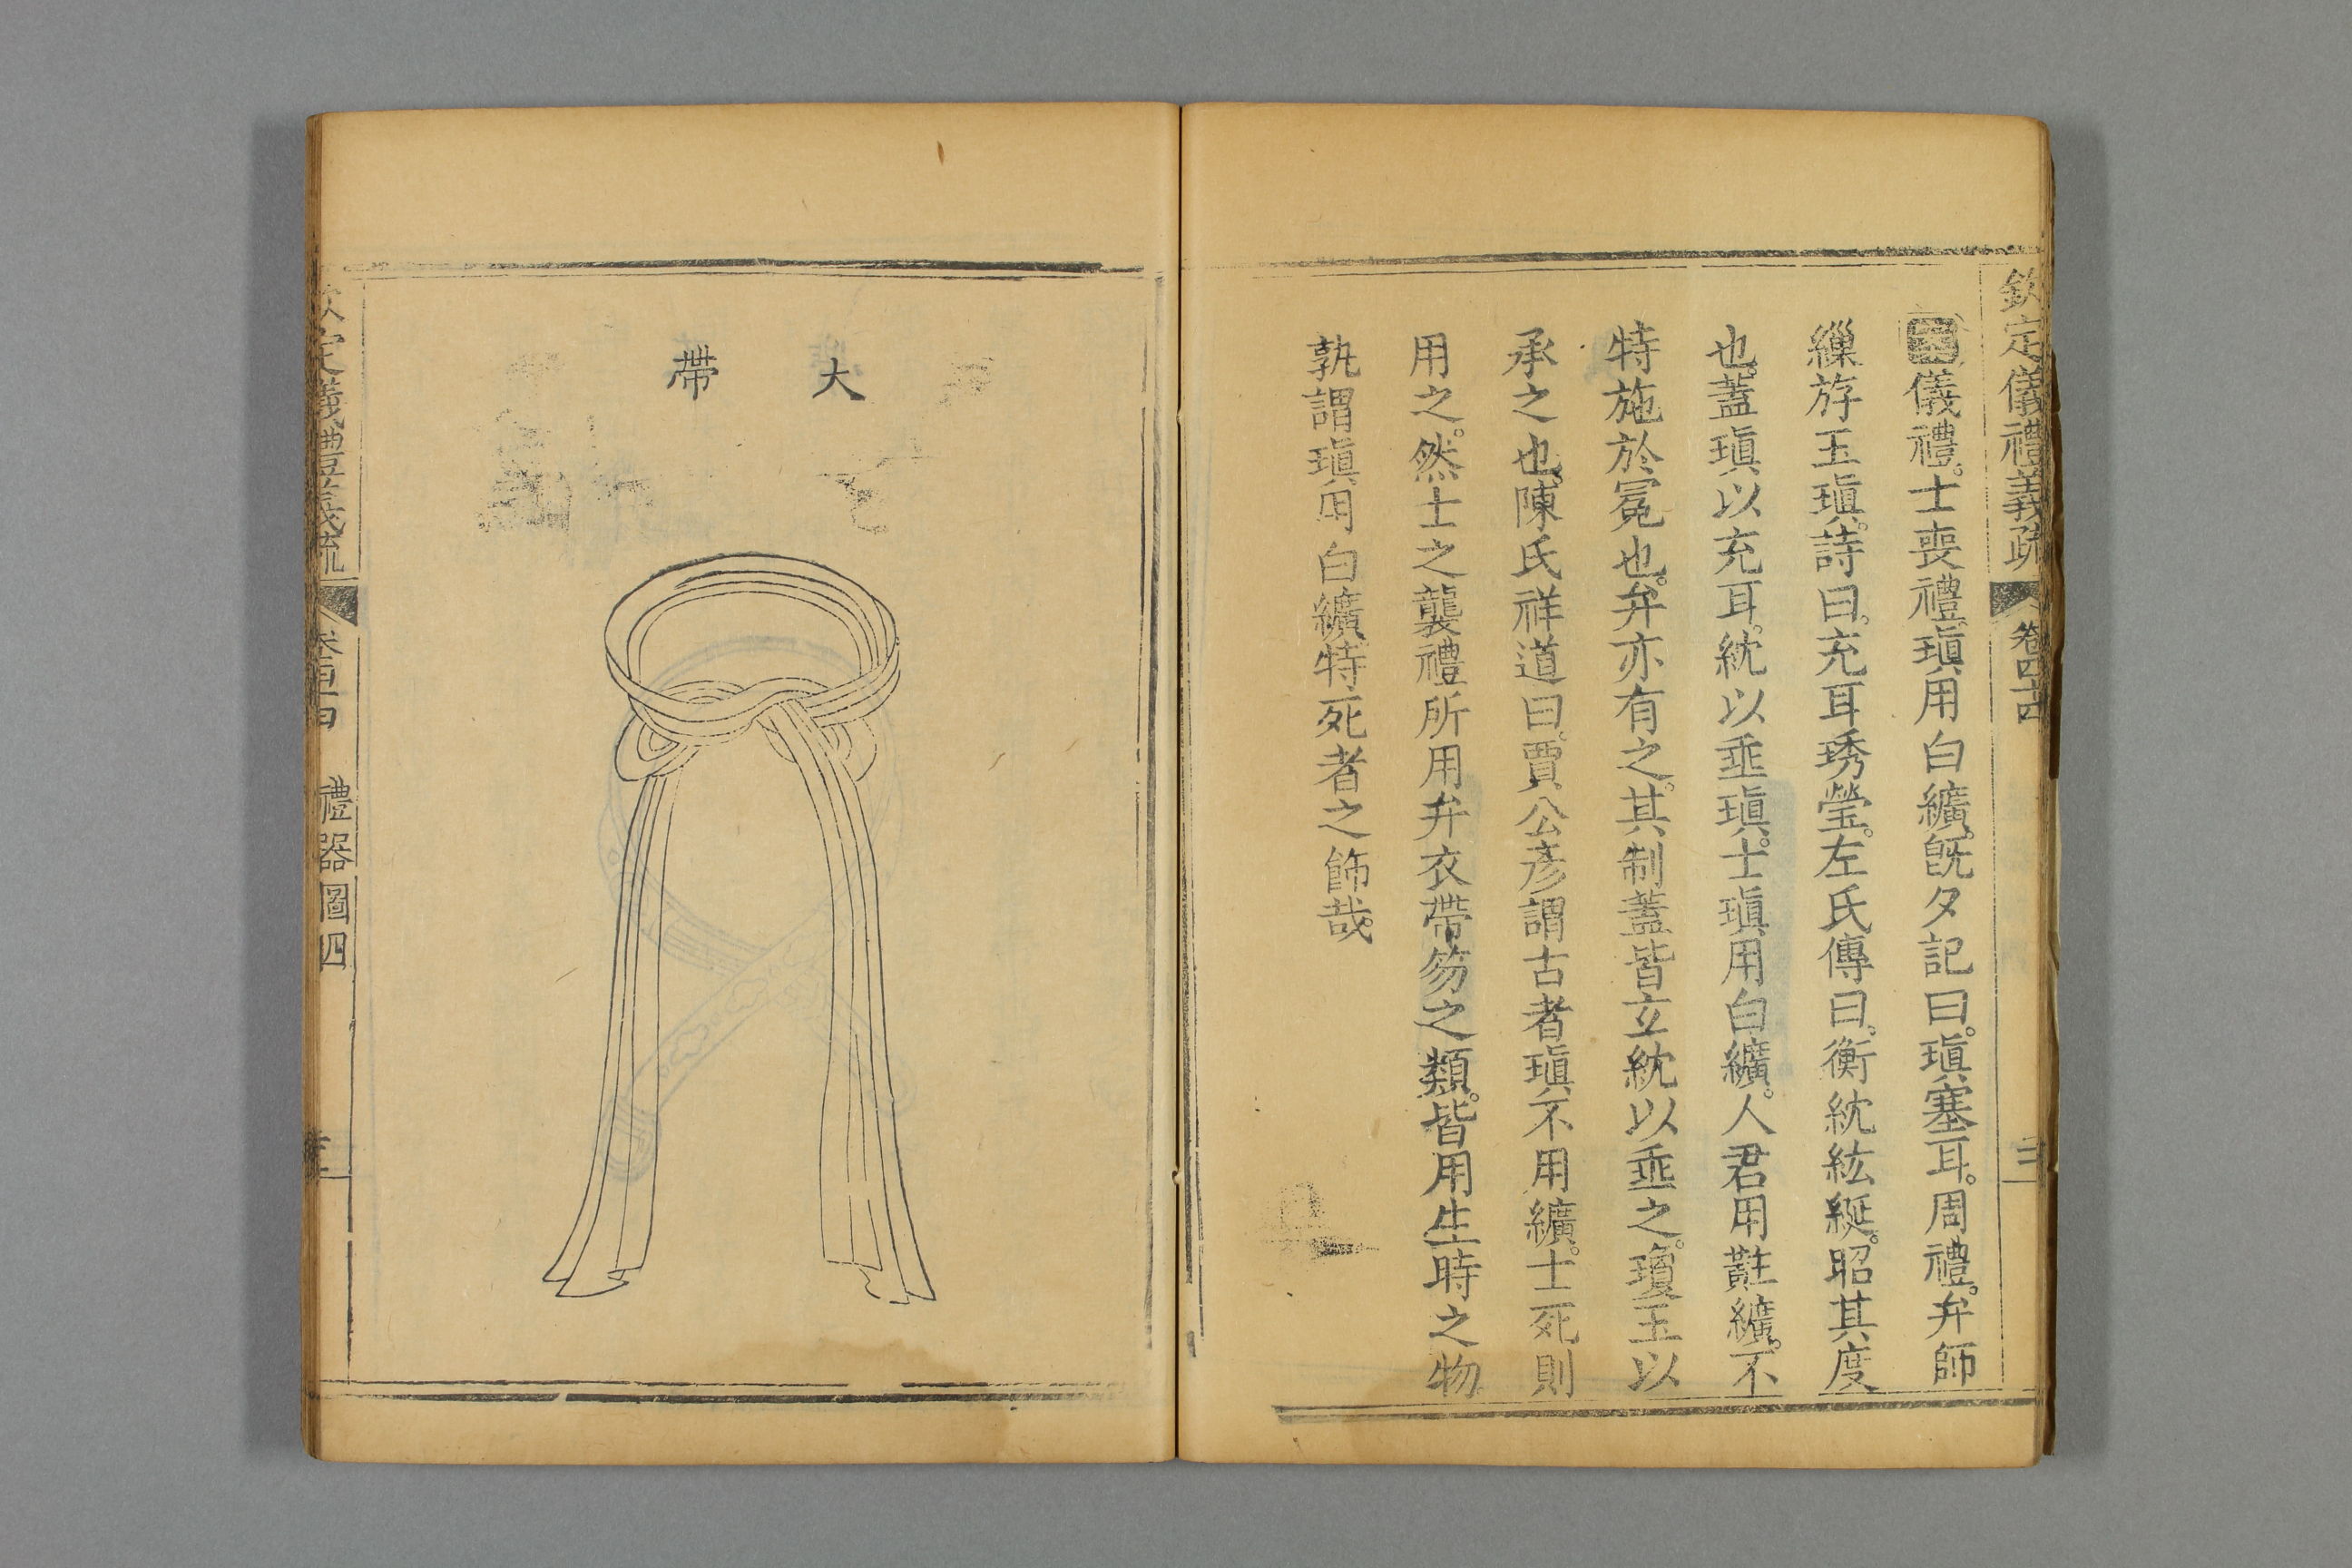 欽定儀禮義疏 卷四十四
儀禮。士喪禮。瑱用白纊。旣夕記曰。瑱塞耳。周禮。弁師
繅斿玉瑱。詩曰。充耳琇瑩。左氏傳曰。衡紞紘綖。昭其度
也。蓋瑱以充耳。紞以垂瑱。士瑱用白纊。人君用黈纊。不
特施於冕也。弁亦有之。其制蓋皆立紞以垂之。瓊玉以
承之也。陳氏祥道曰。賈公彥謂古者瑱不用纊。士死則
用之。然士之襲禮所用弁衣帶笏之類。皆用生時之物
孰謂瑱用白纊。特死者之飾哉。
大帶
定儀禮義疏 禮器圖四